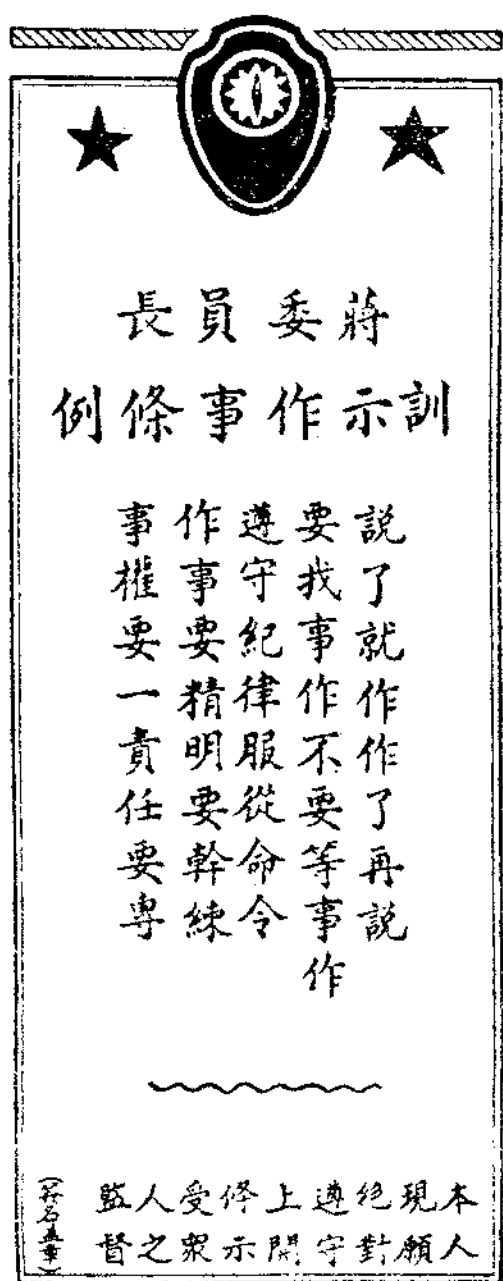 蔣委員長
訓示作事條例
説了就作作了再説
要找事作不要等事作
遵守紀律服從命令
作事要精明要幹練
事權要一責任要專
本人
現願
絕對
遵守
上開
條示
受衆
人之
監督
(簽名蓋章)